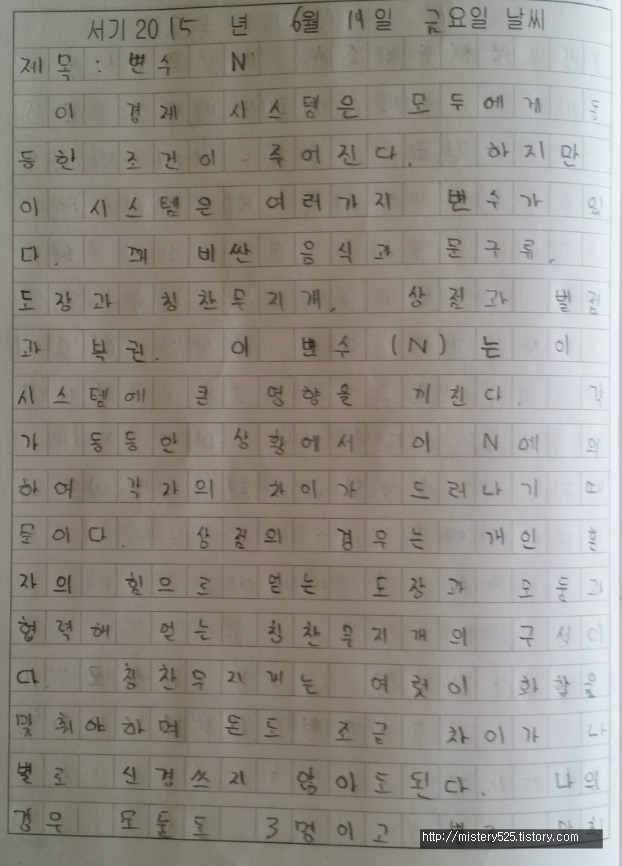 서기 2015 년 6월 19일 금요일 날씨
제목 : 변수 N
이 경제 시스템은 모두에게 동
등한 조건이 주어진다. 하지만
이 시스템은 여러가지 변수가 있
다. 꽤 비싼 음식과 문구류,
도장과 칭찬무지개, 상점과 벌점
과 복권. 이 변수 (N)는 이
시스템에 큰 영향을 끼진다. 각
가 동등한 상황에서 이 N에 의
하여 각자의 차이가 드러나기 때
문이다. 상점의 경우는 개인 혼
자의 힘으로 얻는 도장과 모둠과
협력해 얻는 칭찬무지개의 구성이
다. 칭찬무지개는 여럿이 화합을
맞춰야하며 돈도 조금 차이가 나
별로 신경쓰지 않아도된다. 나의
경우 모둠도 3명이고
http://mistery525.tistory.com